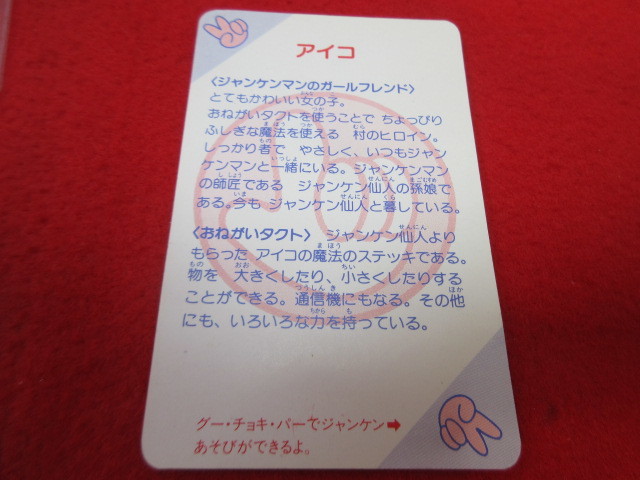 アイコ
〈ジャンケンマンのガールフレンド〉
とてもかわいい女の子。
おねがいタクトを使うことで ちょっぴり
ふしぎな魔法を使える 村のヒロイン。
しっかり者で やさしく、いつもジャン
ケンマンと一緒にいる。ジャンケンマン
の師匠である ジャンケン仙人の孫娘で
ある。今も ジャンケン仙人と暮している。
〈おねがいタクト〉 ジャンケン仙人より
もらった アイコの魔法のステッキである。
物を 大きくしたり、小さくしたりする
ことができる。通信機にもなる。その他
にも、いろいろな力を持っている。
グー・チョキ・パーでジャンケン➡
あそびができるよ。